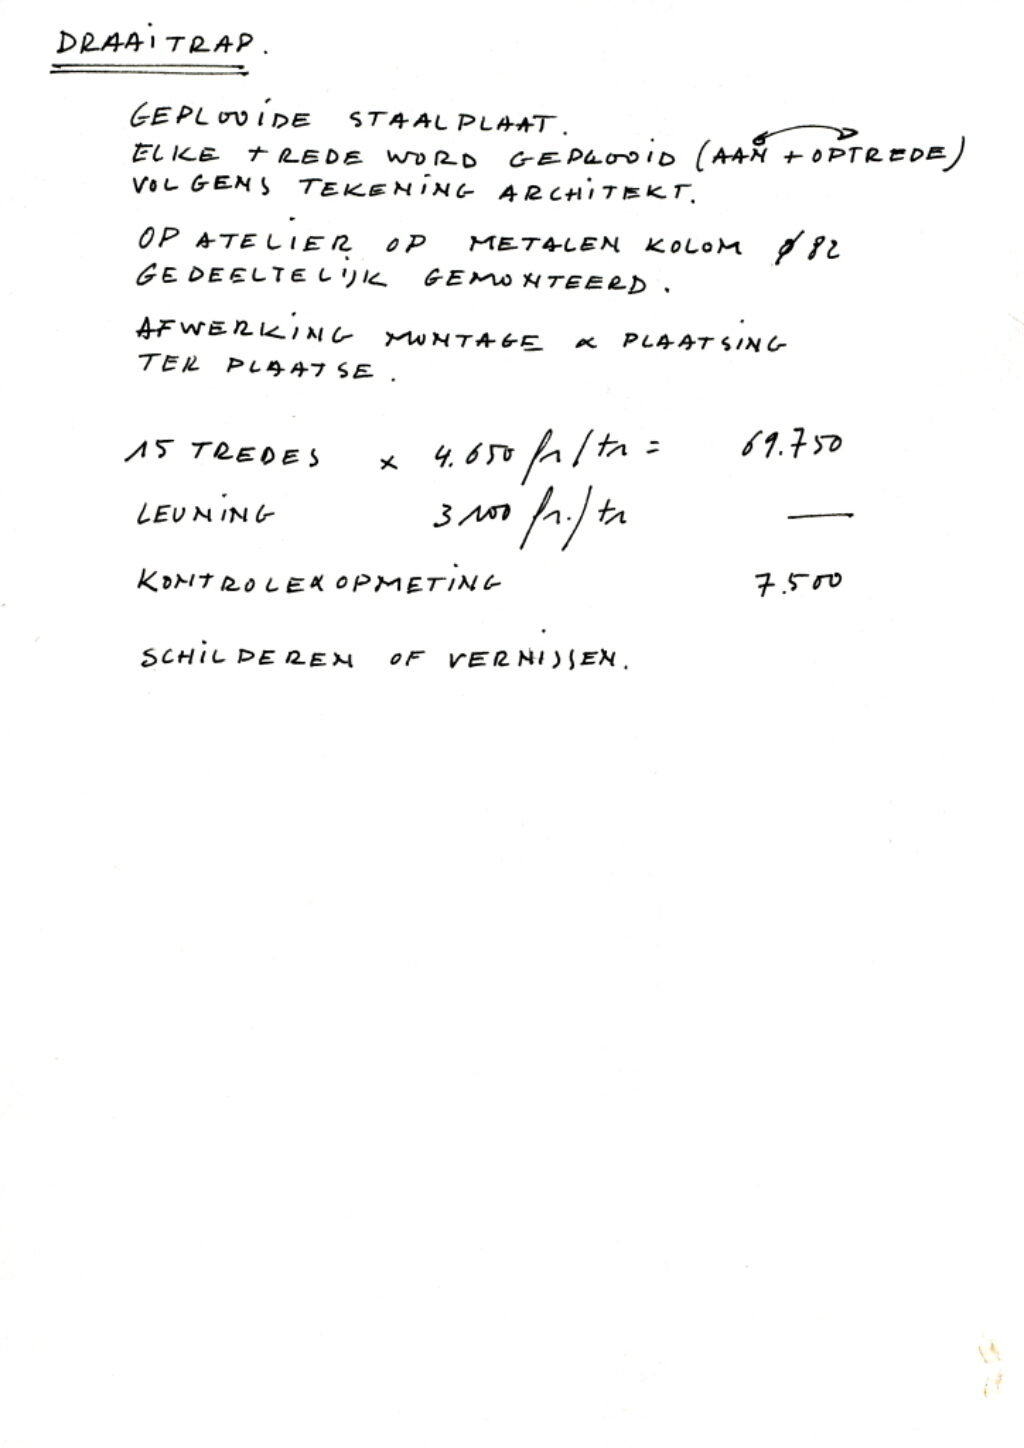 DRAAITRAP.
GEPLOOIDE STAALPLAAT.
ELKE TREDE WORD GEPLOOID (AAN + OPTREDE)
VOLGENS TEKENING ARCHITEKT.
OP ATELIER OP METALEN KOLOM ø 82
GEDEELTELIJK GEMONTEERD.
AFWERKING MONTAGE & PLAATSING
TER PLAATSE.
15 TREDES x 4.650 fr/tr = 69.750
LEUNING 3100 fr./tr —
KONTROLE & OPMETING 7.500
SCHILDEREN OF VERNISSEN.